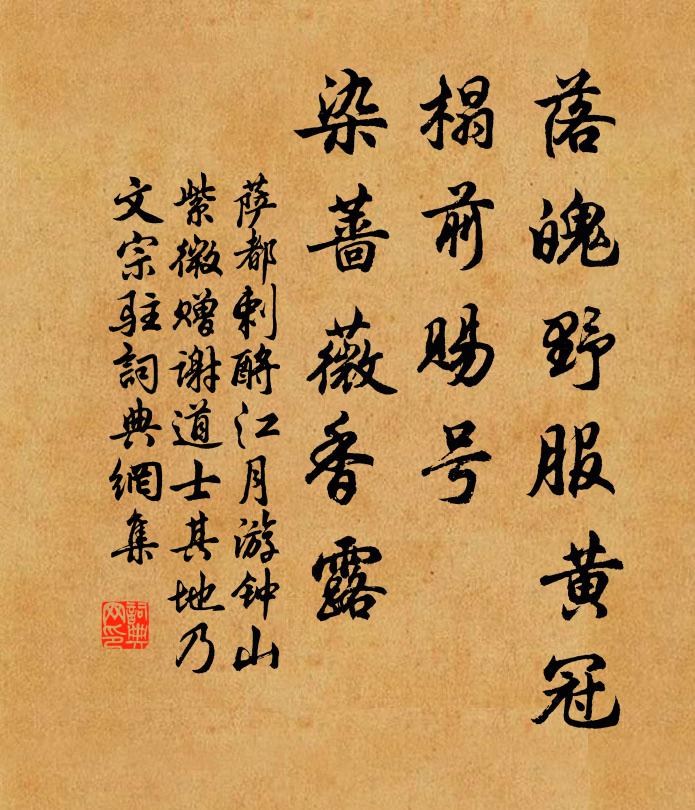 落魄野服黄冠
榻前赐号
染蔷薇香露
萨都剌酹江月游钟山
紫微赠谢道士其地乃
文宗驻詞典網集
詞典
网印